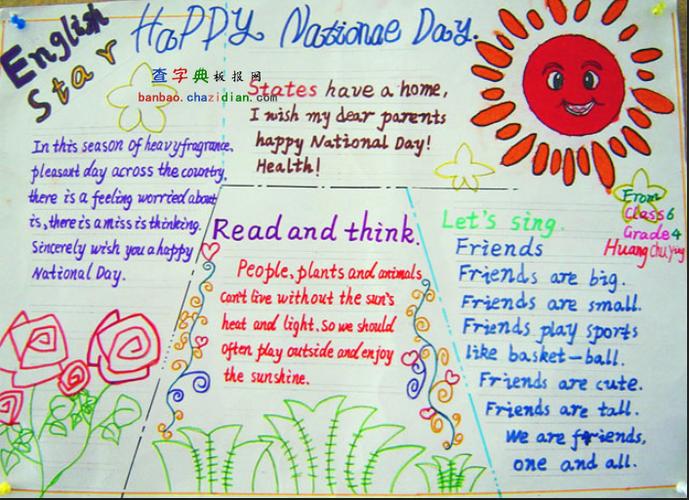 English
Star
HaPPy Nationae Day.
查字典板报网
banbao.chazidian.com
States have a home,
I wish my dear parents
happy National Day!
Health!
In this season of heavy fragrance,
pleasant day across the country,
there is a feeling worried about
is, there is a miss is thinking.
Sincerely wish you a happy
National Day.
Read and think.
People, plants and animals
Can't live without the sun's
heat and light. so we should
often play outside and enjoy
the sunshine.
From
Class 6
Grade 4
Huang Chu Ying
Let's sing.
Friends
Friends are big.
Friends are small.
Friends play sports
like basket-ball.
Friends are cute.
Friends are tall.
We are friends,
one and all.